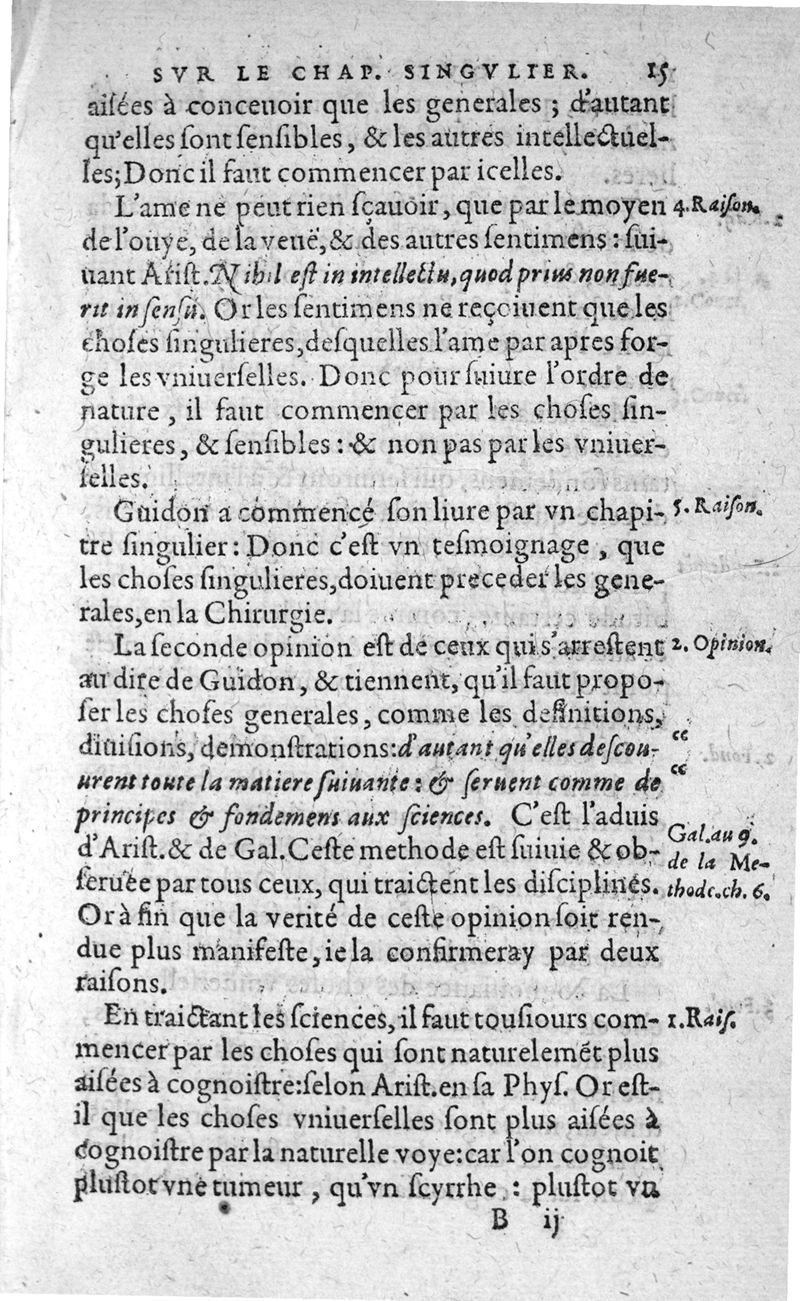 SVR LE CHAP. SINGVLIER. 15
aiſées à conceuoir que les generales ; d'autant
qu'elles ſont ſenſibles, & les autres intellectuel-
les; Donc il faut commencer par icelles.
L'ame ne peut rien ſçauoir, que par le moyen
4. Raiſon.
de l'ouye, de la veuë, & des autres ſentimens : ſui-
uant Ariſt. Nihil eſt in intellectu, quod prius non fue-
rit in ſenſu. Or les ſentimens ne reçoiuent que les
choſes ſingulieres, deſquelles l'ame par apres for-
ge les vniuerſelles. Donc pour ſuiure l'ordre de
nature, il faut commencer par les choſes ſin-
gulieres, & ſenſibles : & non pas par les vniuer-
ſelles.
Guidon a commencé ſon liure par vn chapi-
5. Raiſon.
tre ſingulier: Donc c'eſt vn teſmoignage, que
les choſes ſingulieres, doiuent preceder les gene-
rales, en la Chirurgie.
La ſeconde opinion eſt de ceux qui s'arreſtent
2. Opinion.
au dire de Guidon, & tiennent, qu'il faut propo-
ſer les choſes generales, comme les definitions,
diuiſions, demonſtrations: d'autant qu'elles deſcou-
“
urent toute la matiere ſuiuante : & ſeruent comme de
“
principes & fondemens aux ſciences. C'eſt l'aduis
d'Ariſt. & de Gal. Ceſte methode eſt ſuiuie & ob-
ſeruée par tous ceux, qui traictent les diſciplines.
Gal. au 9.
de la Me-
thode. ch. 6.
Or à fin que la verité de ceſte opinion ſoit ren-
due plus manifeſte, ie la confirmeray par deux
raiſons.
En traictant les ſciences, il faut touſiours com-
1. Raiſ.
mencer par les choſes qui ſont naturelemẽt plus
aiſées à cognoiſtre: ſelon Ariſt. en ſa Phyſ. Or eſt-
il que les choſes vniuerſelles ſont plus aiſées à
cognoiſtre par la naturelle voye: car l'on cognoit
pluſtot vne tumeur, qu'vn ſcyrrhe : pluſtot vn
B ij